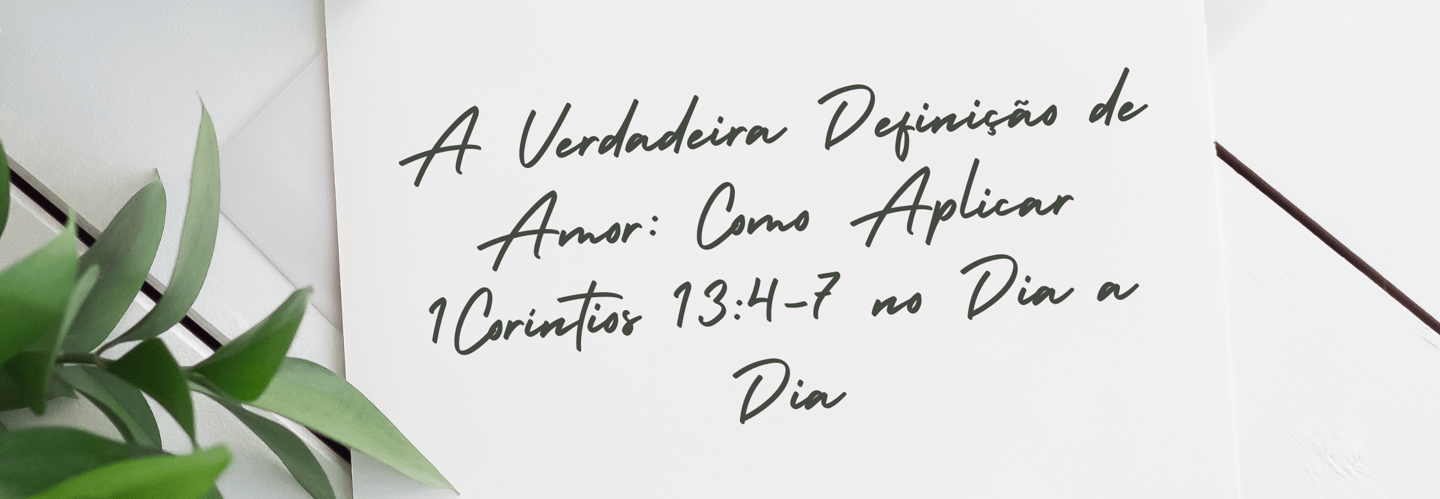 A Verdadeira Definição de
Amor: Como Aplicar
1Coríntios 13:4-7 no Dia a
Dia